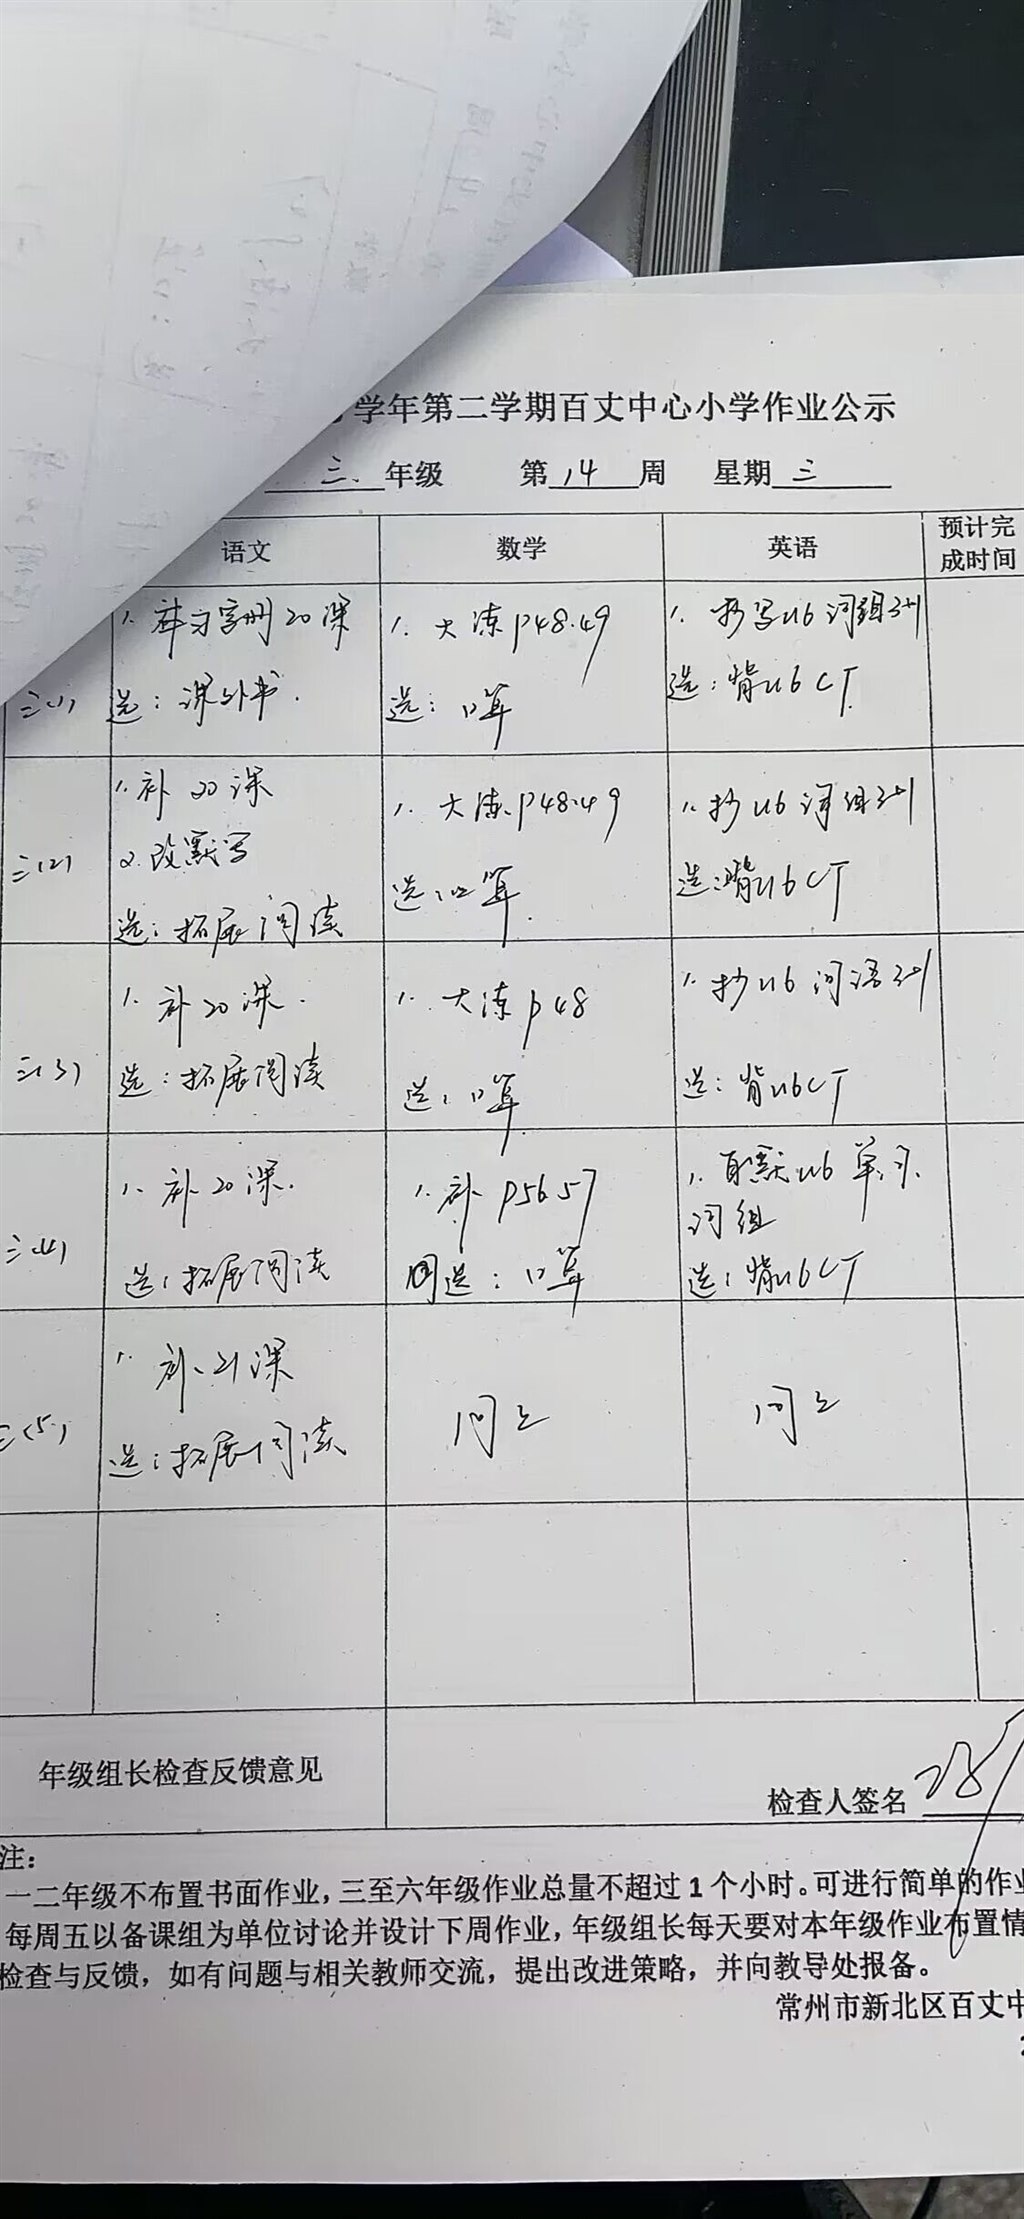 学年第二学期百丈中心小学作业公示
三、年级 第14周 星期三
语文 数学 英语 预计完成时间
三(1)
1. 补习字册20课
选：课外书.
1. 大练P48.49
选：口算
1. 抄写u6词组3+1
选：背u6CT
三(2)
1. 补20课
2. 改默写
选：拓展阅读
1. 大练P48.49
选：口算.
1. 抄u6词组3+1
选：背u6CT
三(3)
1. 补20课.
选：拓展阅读
1. 大练P48
选：口算
1. 抄u6词语3+1
选：背u6CT
三(4)
1. 补20课.
选：拓展阅读
1. 补P56.57
选：口算
1. 自默u6单词.
词组
选：背u6CT
三(5)
1. 补21课
选：拓展阅读
同上
同上
年级组长检查反馈意见
检查人签名
注：
一二年级不布置书面作业，三至六年级作业总量不超过1个小时。可进行简单的作业
每周五以备课组为单位讨论并设计下周作业，年级组长每天要对本年级作业布置情
检查与反馈，如有问题与相关教师交流，提出改进策略，并向教导处报备。
常州市新北区百丈中